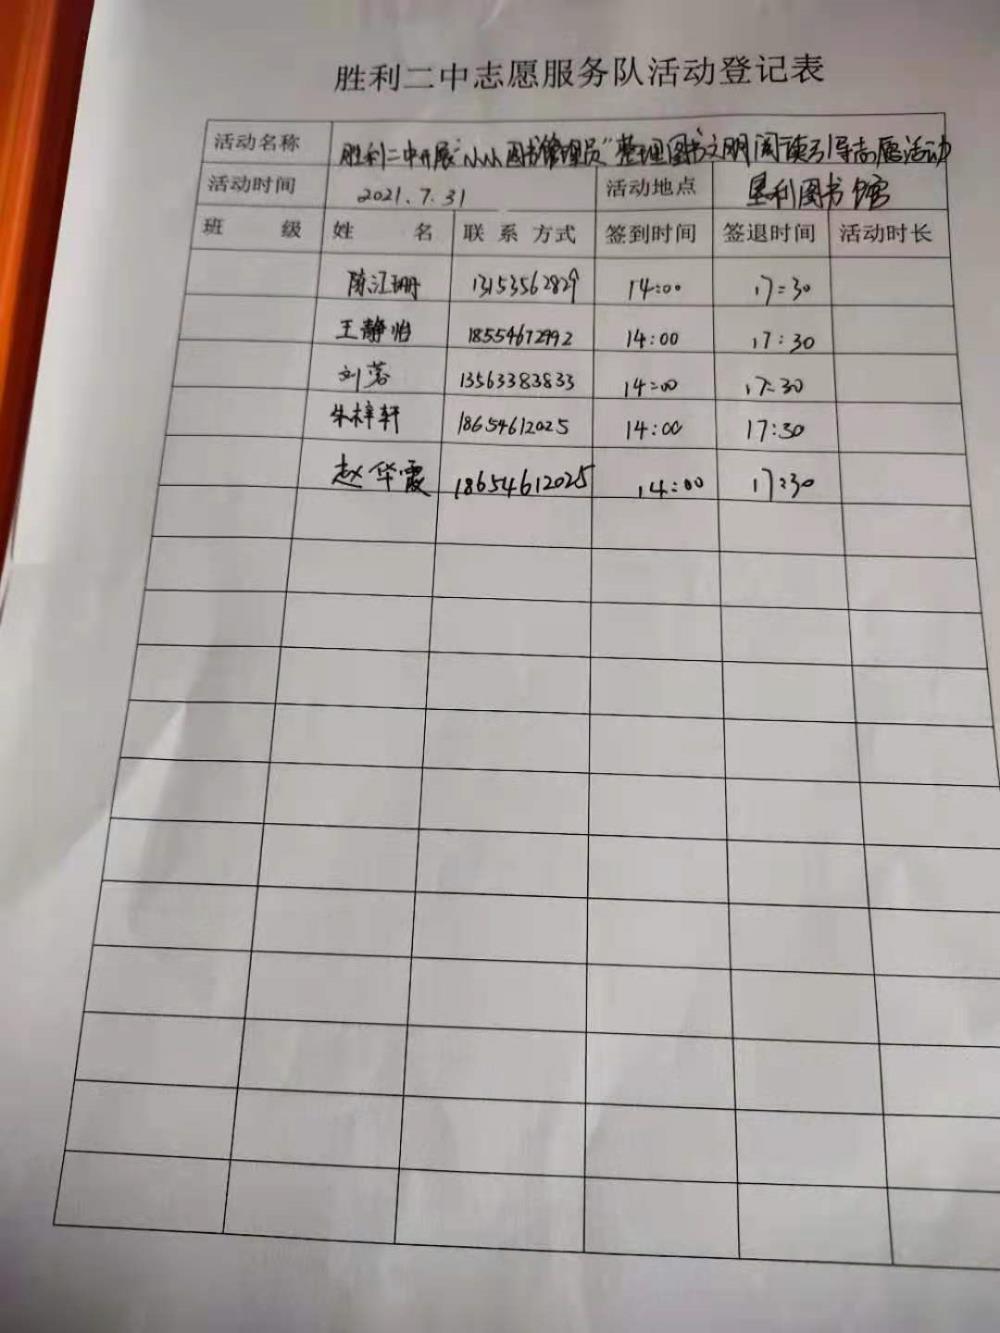 胜利二中志愿服务队活动登记表
活动名称 胜利二中开展"小小图书管理员"整理图书文明阅读引导志愿活动
活动时间 2021.7.31 活动地点 垦利图书馆
班 级 姓 名 联 系 方式 签到时间 签退时间 活动时长
陈江珊 13153562829 14:00 17:30
王静怡 18554672992 14:00 17:30
刘蓉 13563383833 14:00 17:30
朱梓轩 18654612025 14:00 17:30
赵华霞 18654612025 14:00 17:30